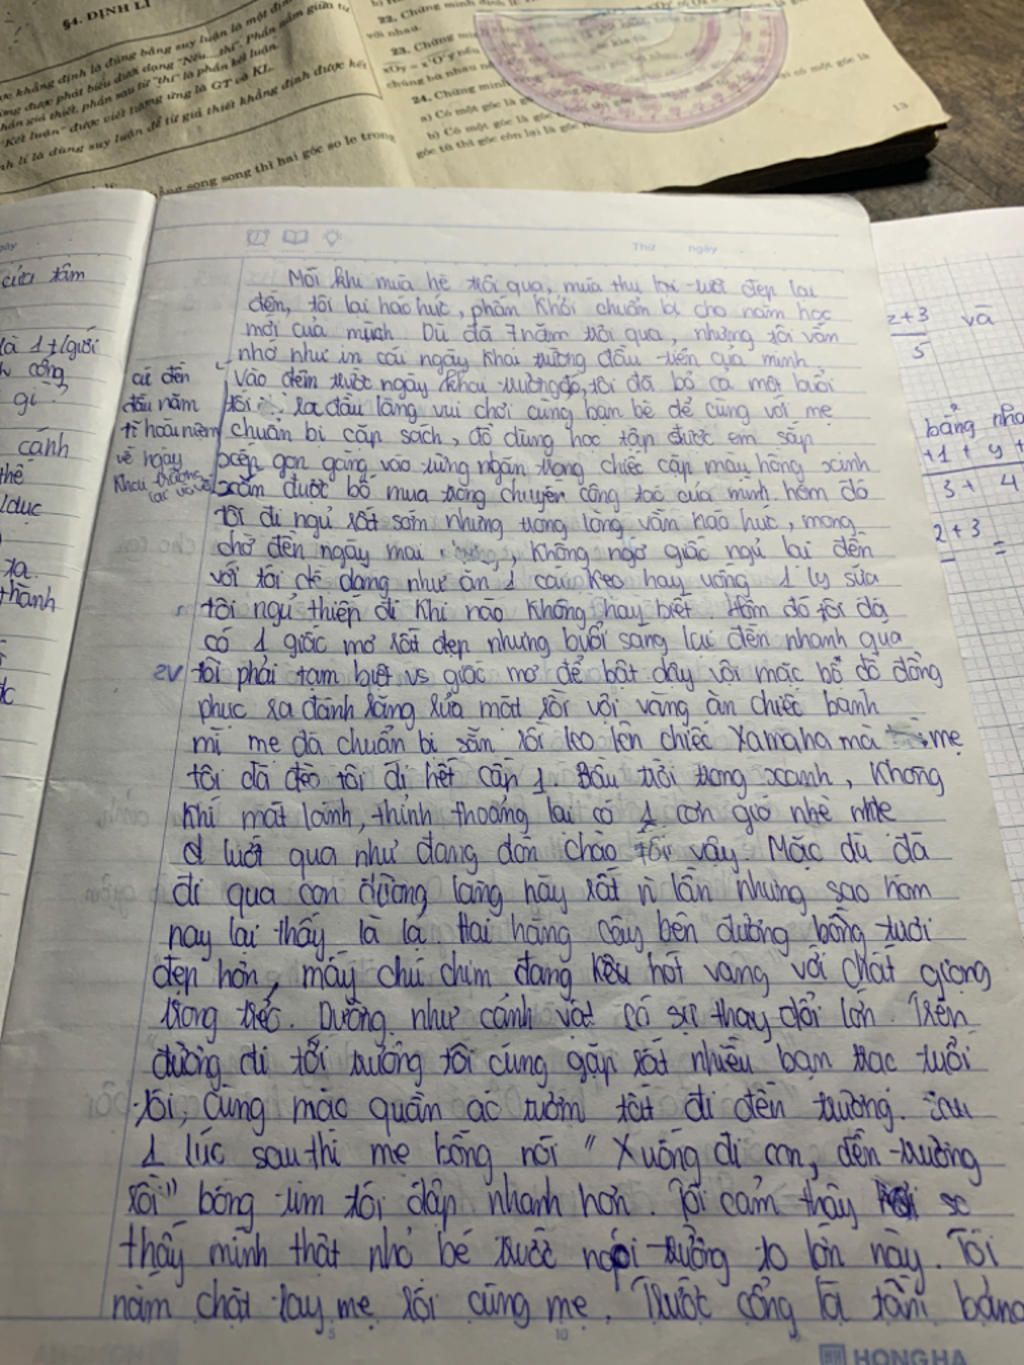 §4. ĐỊNH LÍ
22. Chứng minh
với nhau.
23. Chứng minh
24. Chứng minh
a) Có một góc là
b) Có một góc là góc
góc tù thì góc còn lại là góc
có một góc là
13
khẳng định là đúng bằng suy luận là một
được phát biểu dưới dạng "Nếu... thì". Phần nằm giữa từ
giả thiết, phần sau từ "thì" là phần kết luận.
"Kết luận" được viết tương ứng là GT và KL.
lí là dùng suy luận để từ giả thiết khẳng định được kết
song song thì hai góc so le trong
Thứ ngày
cửa tâm
là 1 t/giới
công
gì ?
cảnh
thể
/dục
ta
thành
Mỗi khi mùa hè trôi qua, mùa thu tươi đẹp lại
đến, tôi lại háo hức, phấn khởi chuẩn bị cho năm học
mới của mình. Dù đã 7 năm trôi qua, nhưng tôi vẫn
nhớ như in cái ngày khai trường đầu tiên của mình.
cứ đến
đầu năm
tí hoài niệm
về ngày
khai trường
Vào đêm trước ngày khai trường đó, tôi đã bỏ cả một buổi
tối ra đầu làng vui chơi cùng bạn bè để cùng với mẹ
chuẩn bị cặp sách, đồ dùng học tập được em sắp
xếp gọn gàng vào từng ngăn trong chiếc cặp màu hồng xinh
xắn được bố mua trong chuyến công tác của mình. hôm đó
tôi đi ngủ rất sớm nhưng trong lòng vẫn náo hức, mong
chờ đến ngày mai, không ngờ giấc ngủ lại đến
với tôi dễ dàng như ăn 1 cái kẹo hay uống 1 ly sữa
tôi ngủ thiếp đi khi nào không hay biết. Hôm đó tôi đã
có 1 giấc mơ rất đẹp nhưng buổi sáng lại đến nhanh quá
tôi phải tạm biệt vs giấc mơ để bật dậy vội mặc bộ đồ đồng
phục ra đánh răng rửa mặt rồi vội vàng ăn chiếc bánh
mì mẹ đã chuẩn bị sẵn rồi leo lên chiếc Yamaha mà mẹ
tôi đã đèo tôi đi hết cấp 1. Bầu trời trong xanh, không
khí mát lành, thỉnh thoảng lại có 1 cơn gió nhè nhẹ
lướt qua như đang đón chào tôi vậy. Mặc dù đã
đi qua con đường làng này rất n lần nhưng sao hôm
nay lại thấy là lạ. Hai hàng cây bên đường bỗng tươi
đẹp hơn, mấy chú chim đang hót vang với chất giọng
trong trẻo. Dường như cảnh vật có sự thay đổi lớn. Trên
đường đi tới trường tôi cũng gặp rất nhiều bạn trạc tuổi
tôi, cũng mặc quần áo tươm tất đi đến trường. Sau
1 lúc sau thì mẹ bỗng nói " Xuống đi con, đến trường
rồi" bỗng tim tôi đập nhanh hơn. Tôi cảm thấy sợ
thấy mình thật nhỏ bé trước ngôi trường to lớn này. Tôi
nắm chặt tay mẹ rồi cùng mẹ. Trước cổng là tấm bảng
z+3 và
5
bằng nha
+1 + y +
3 + 4
2 + 3
=
5
10
HONG HA